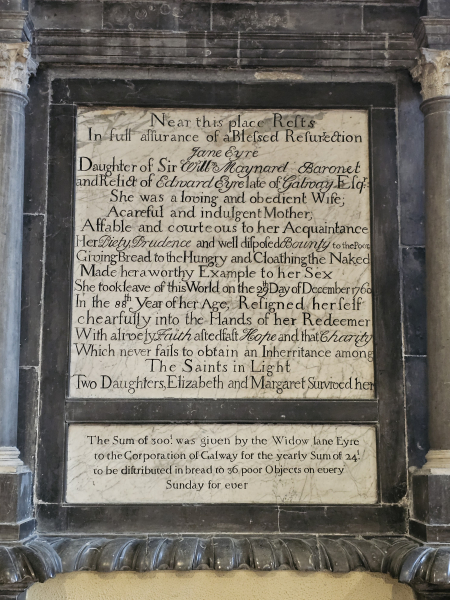 Near this place Rests
In full aſſurance of a Bleſſed Reſurection
Jane Eyre
Daughter of Sir Willm Maynard Baronet
and Relict of Edward Eyre late of Galway Eſqr
She was a loving and obedient Wife,
A careful and indulgent Mother,
Affable and courteous to her Acquaintance
Her Piety Prudence and well diſpoſed Bounty to the Poor
Giving Bread to the Hungry and Cloathing the Naked
Made her a worthy Example to her Sex
She took leave of this World on the 29th Day of December 1760
In the 88th Year of her Age, Reſigned herſelf
chearfully into the Hands of her Redeemer
With a lively Faith a ſtedfaſt Hope and that Charity
Which never fails to obtain an Inherritance among
The Saints in Light
Two Daughters, Elizabeth and Margaret Survived her
The Sum of 300l was given by the Widow Jane Eyre
to the Corporation of Galway for the yearly Sum of 24l
to be diſtributed in bread to 36 poor Objects on every
Sunday for ever